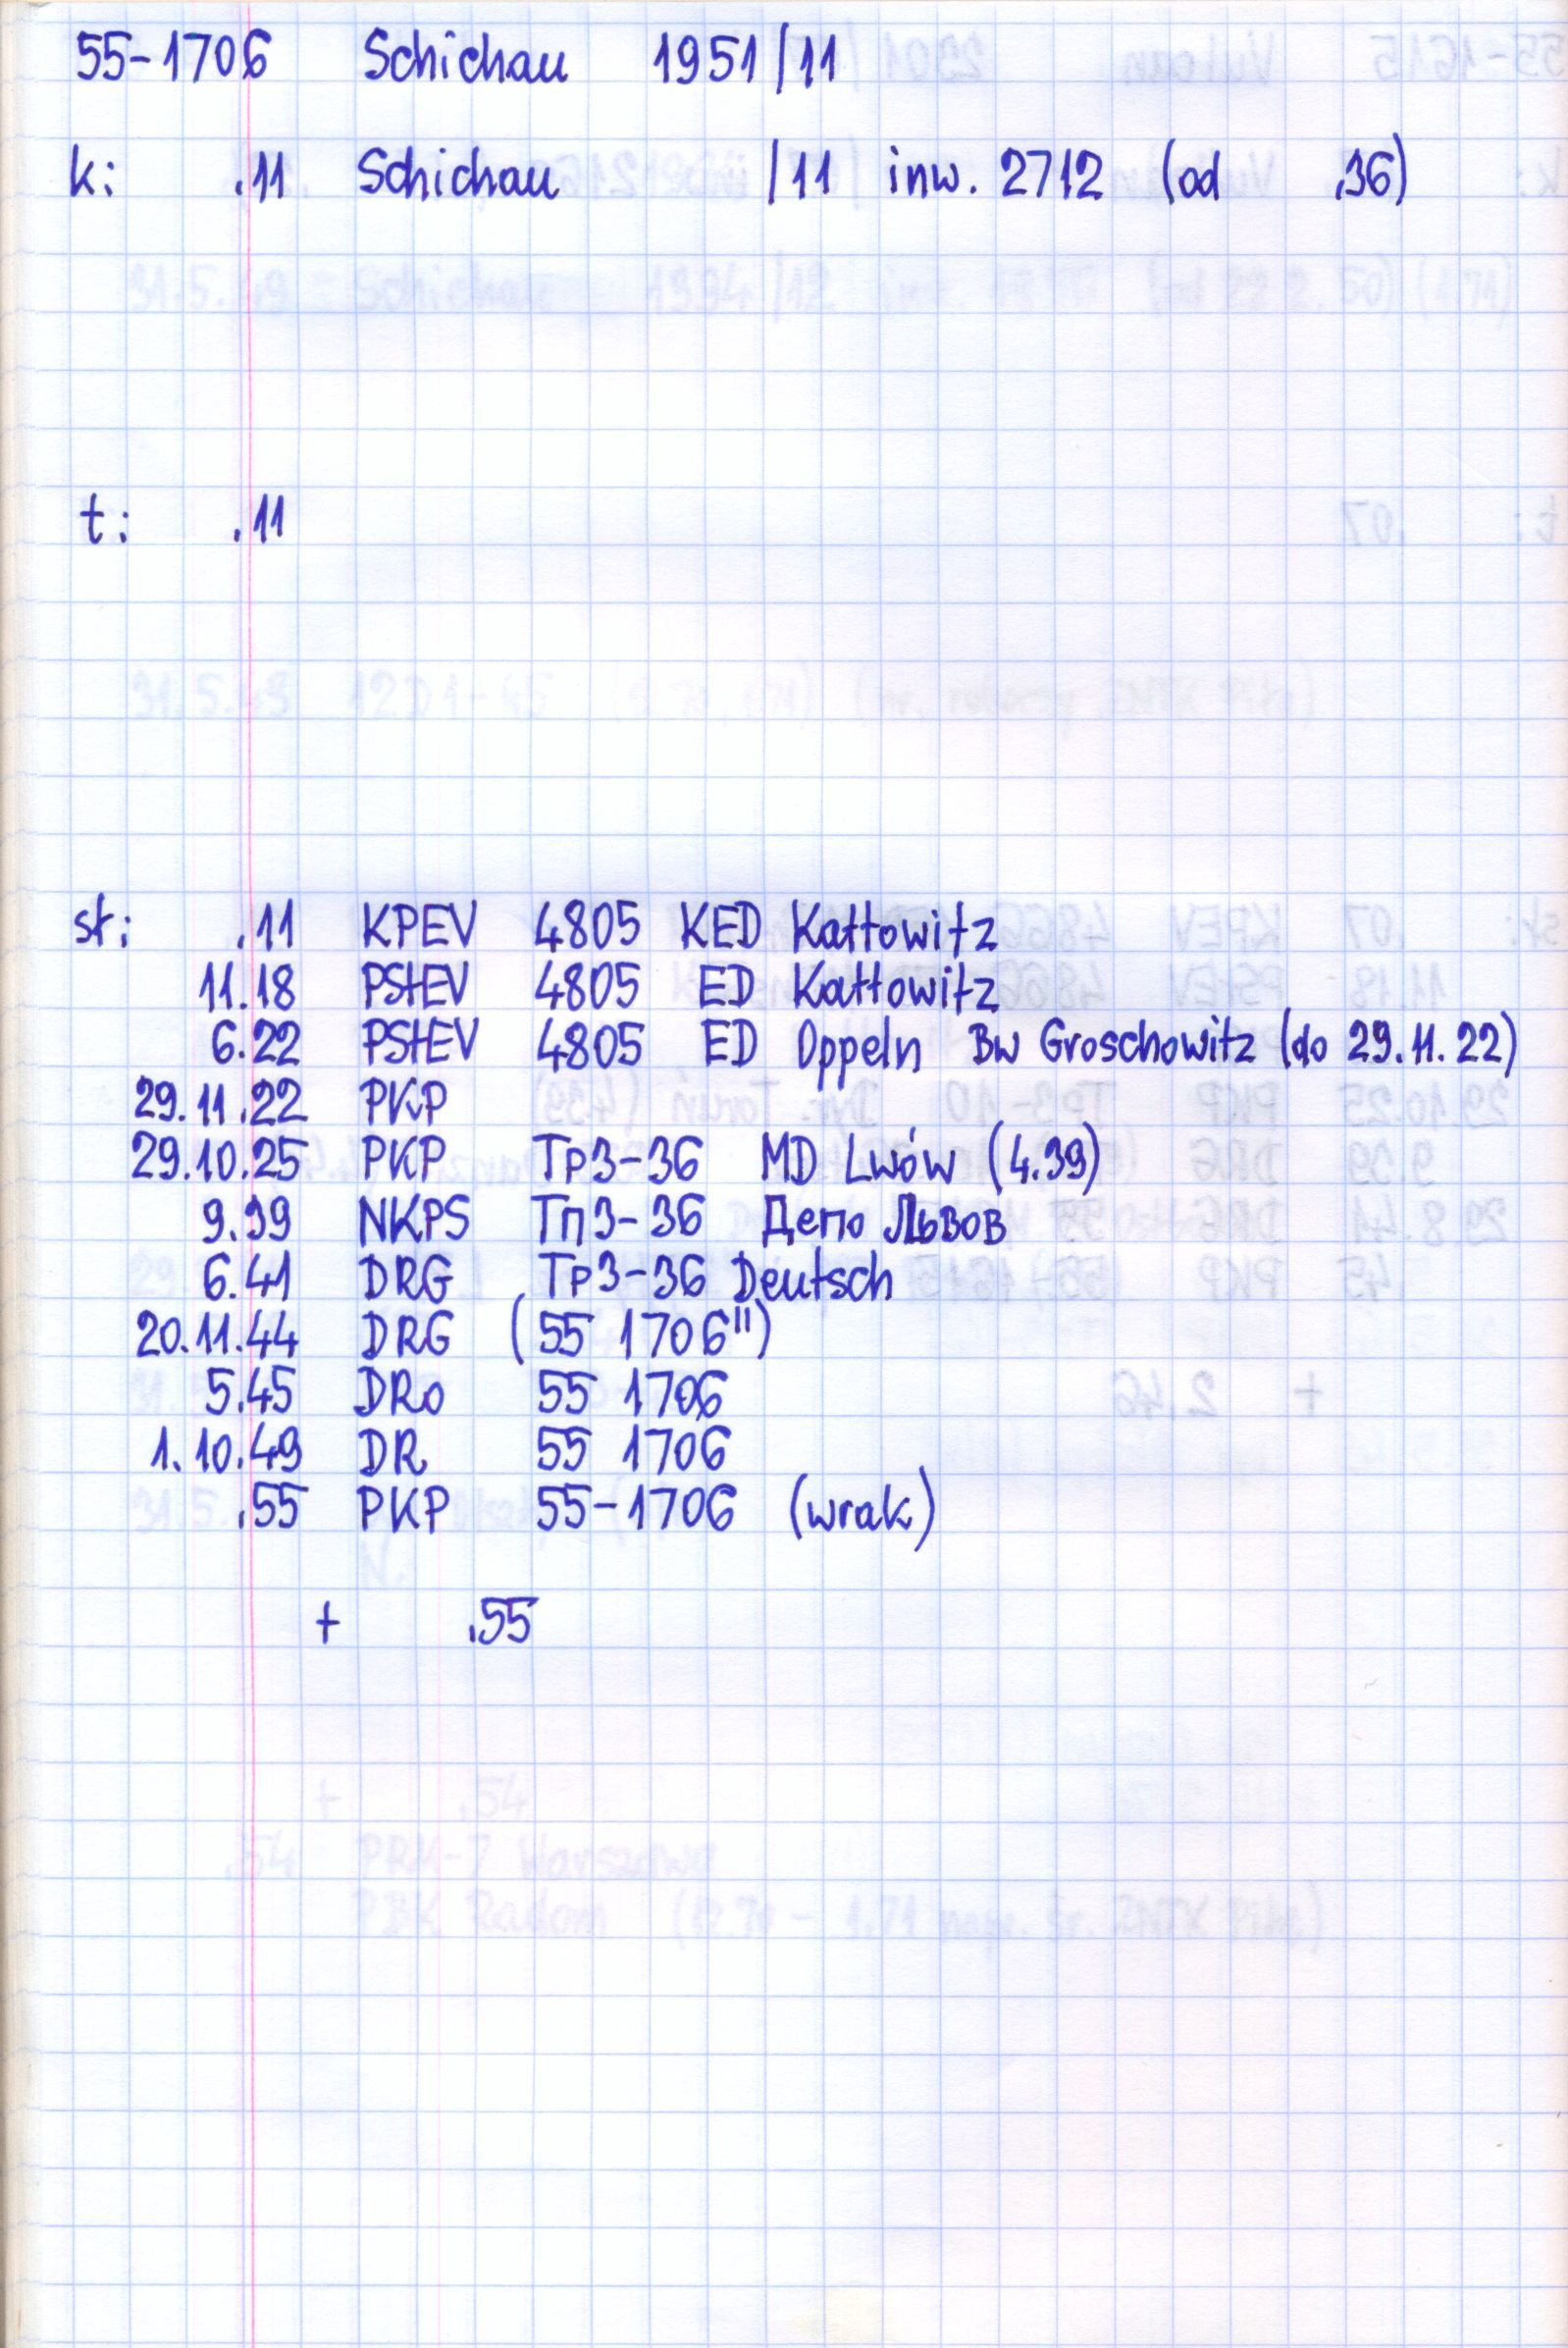 55-1706 Schichau 1951/11
k: .11 Schichau /11 inw. 2712 (od .36)
t: .11
st: .11 KPEV 4805 KED Kattowitz
11.18 PStEV 4805 ED Kattowitz
6.22 PStEV 4805 ED Oppeln Bw Groschowitz (do 29.11.22)
29.11.22 PKP
29.10.25 PKP Tp3-36 MD Lwów (4.39)
9.39 NKPS Тп3-36 Депо Львов
6.41 DRG Tp3-36 Deutsch
20.11.44 DRG (55 1706")
5.45 DRo 55 1706
1.10.49 DR 55 1706
.55 PKP 55-1706 (wrak)
+ .55